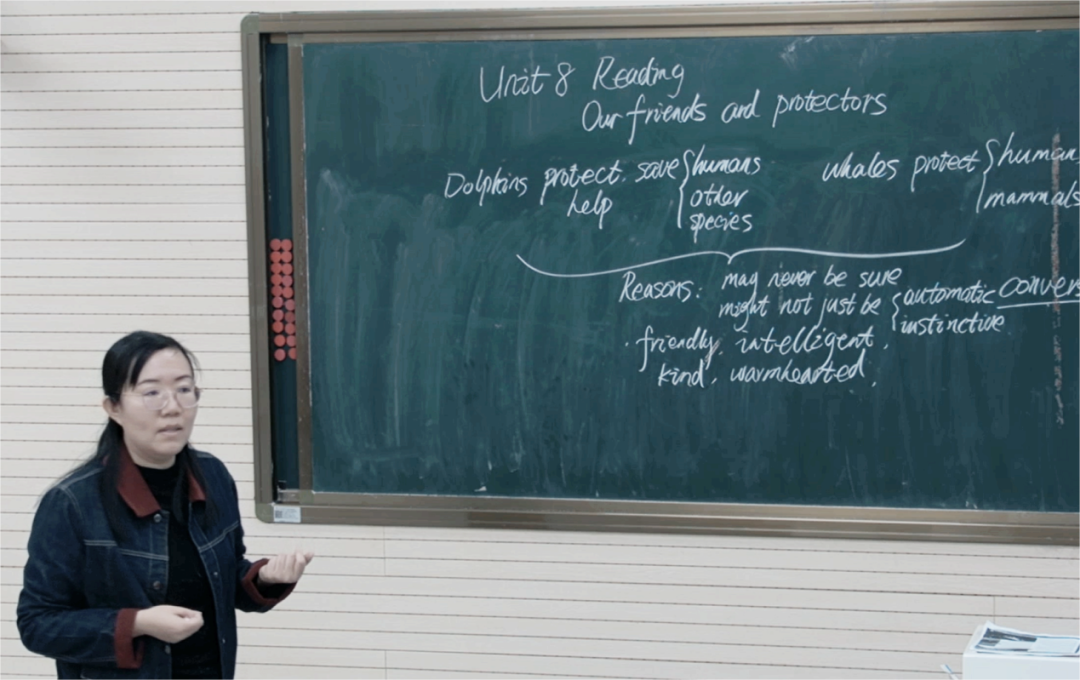 Unit 8 Reading
Our friends and protectors
Dolphins protect. save { humans
help other
species
whales protect { human
mammals
Reasons: may never be sure
might not just be { automatic conver
instinctive
· friendly, intelligent,
kind, warmhearted,